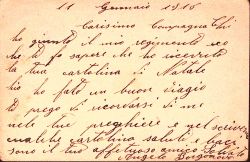 11 Gennaio 1916
Carisimo Compagno Chi
ho giunto il mio regimento eco
che ti fo saper che ho icevuto
la tua cartolina di Natale
ho fato un buon viagio
ti prego di ricordarsi di me
nele tue preghiere e nel
cartoline saluti
sono il tuo affetuoso amico
Angelo